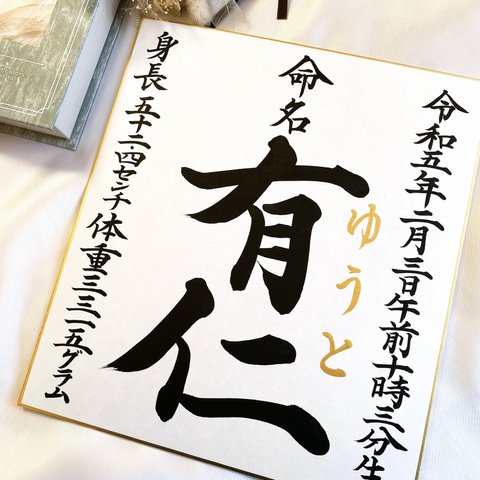 令和五年二月三日午前十時三分生
命名
有仁
ゆうと
身長五十二.四センチ体重三三一五グラム